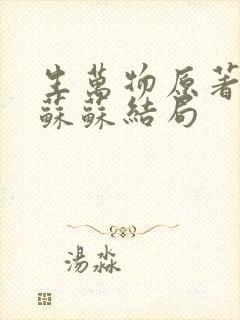 生萬物原著
蘇蘇結局
湯淼